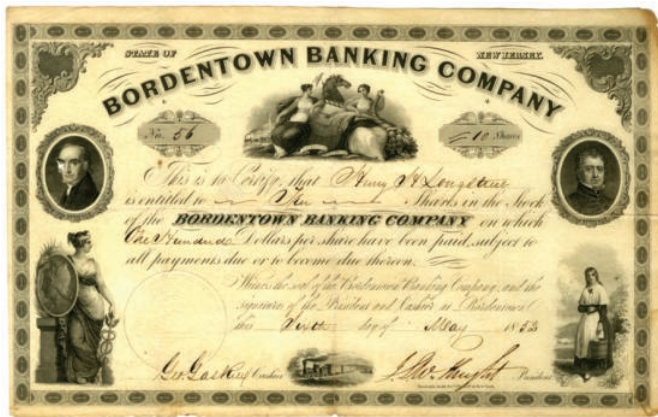 STATE OF NEW JERSEY.
BORDENTOWN BANKING COMPANY
No. 56 10 Shares
This is to Certify, that Henry H Longstreet
is entitled to Ten Shares in the Stock
of the BORDENTOWN BANKING COMPANY on which
One Hundred Dollars per share have been paid, subject to
all payments due or to become due thereon.
Witness the seal of the Bordentown Banking Company, and the
signatures of the President and Cashier at Bordentown
this day of May 185
Cashier President